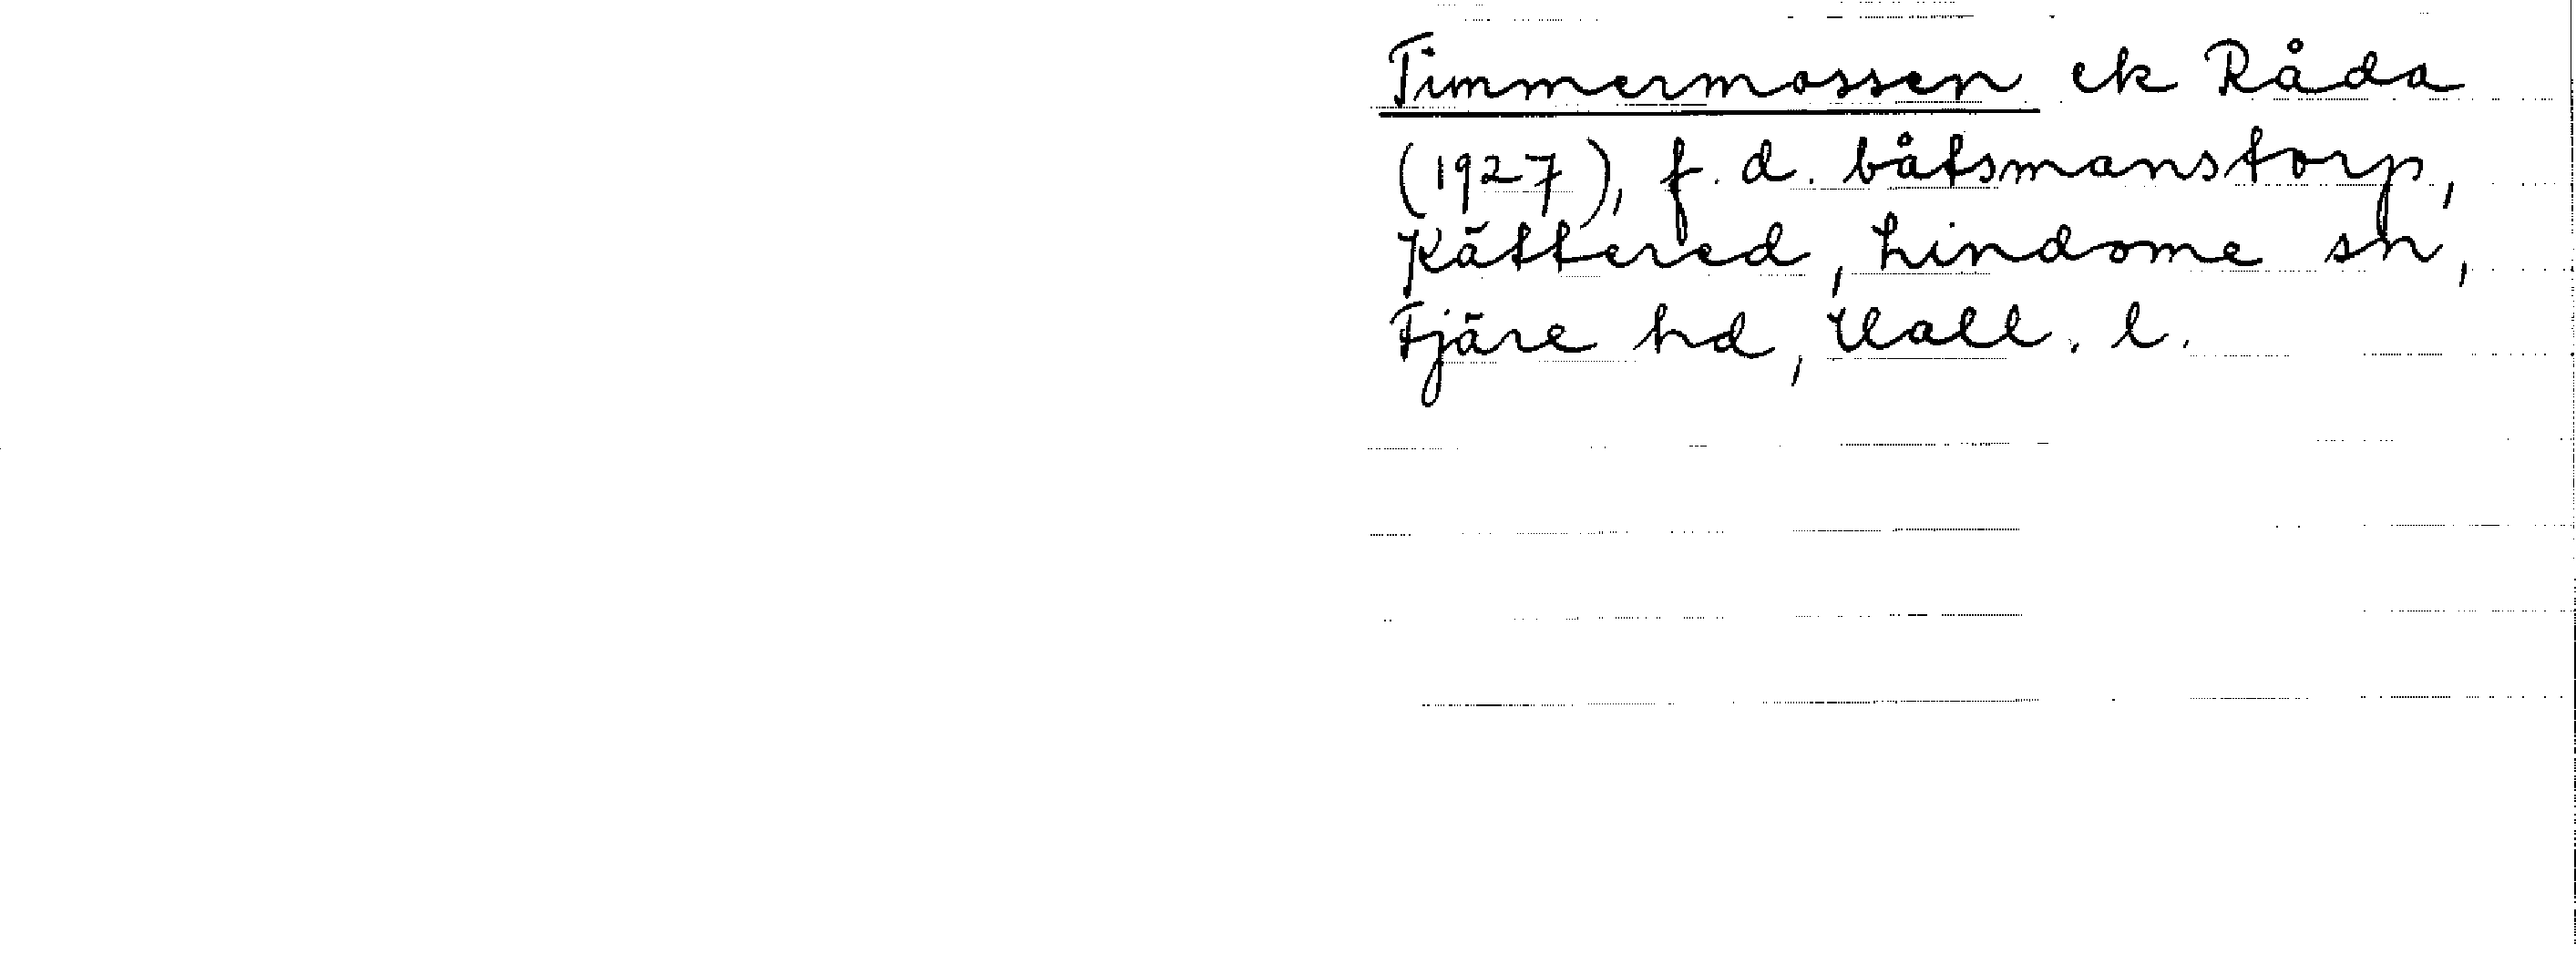 Timmermossen ek Råda
(1927), f. d. båtsmanstorp,
Kättered, Lindome sn,
Fjäre hd, Hall. l.